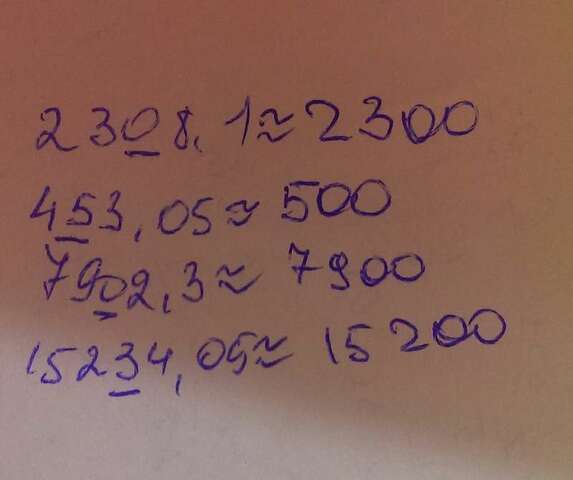 2308,1≈2300
453,05≈500
7902,3≈7900
15234,05≈15200